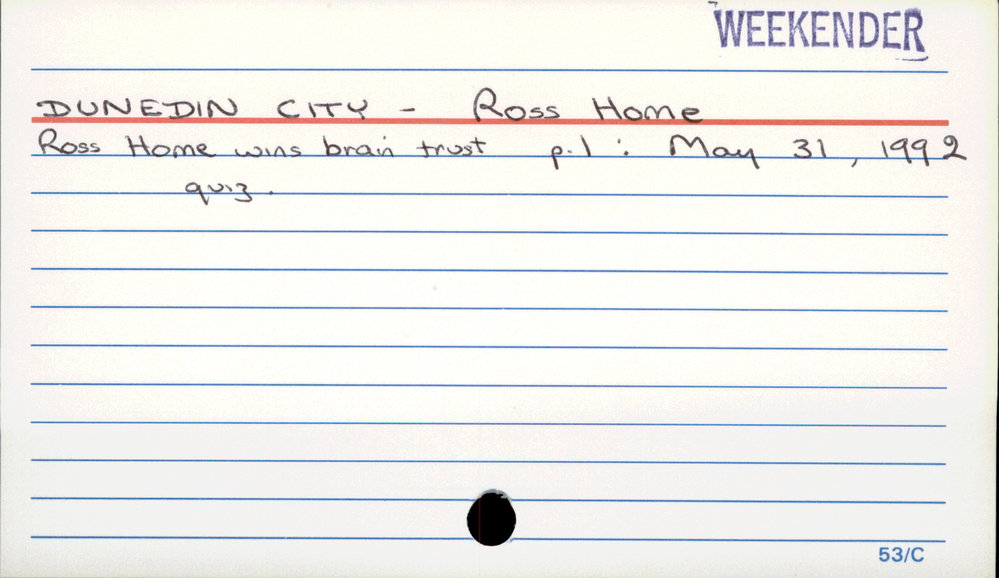 WEEKENDER
DUNEDIN CITY - Ross Home
Ross Home wins brain trust p.1 : May 31, 1992
quiz.
53/C